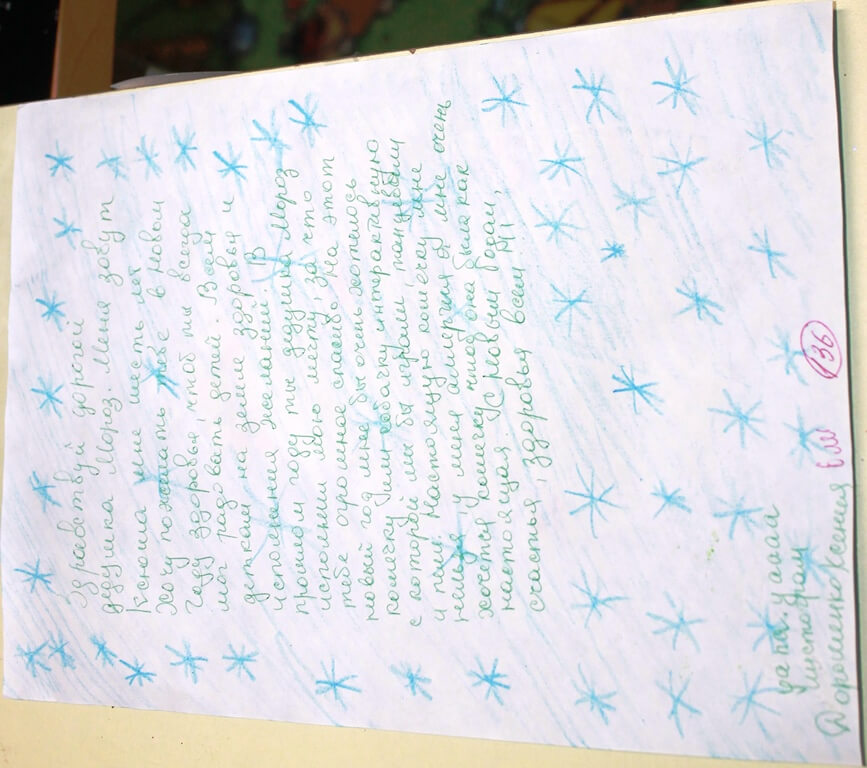 Здравствуй дорогой
дедушка Мороз. Меня зовут
Ксюша мне шесть лет
Хочу пожелать тебе в новом
году здоровья, чтоб ты всегда
мог радовать детей. Всем
деткам на земле здоровья и
исполнения желаний. В
прошлом году ты дедушка Мороз
исполнил мою мечту, за что
тебе огромное спасибо. На этот
новый год мне бы очень хотелось
кошечку или собачку интерактивную
с которой мы бы играли, танцевали
и пели. Настоящую кошечку мне
нельзя у меня алергия а мне очень
хочется кошечку чтоб она была как
настоящая. С новым годом,
счастья, здоровья всем
Дорошенко Ксения
ЕМ
136